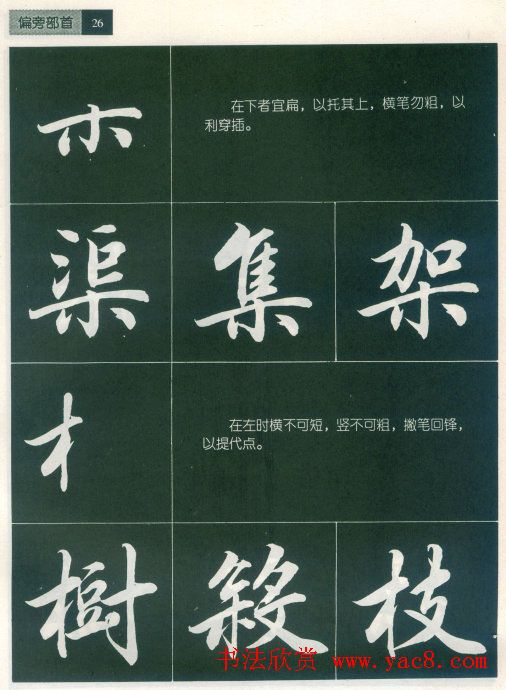 偏旁部首 26
木
在下者宜扁，以托其上，横笔勿粗，以
利穿插。
渠 集 架
木
在左时横不可短，竖不可粗，撇笔回锋，
以提代点。
樹 枝
书法欣赏 www.yac8.com